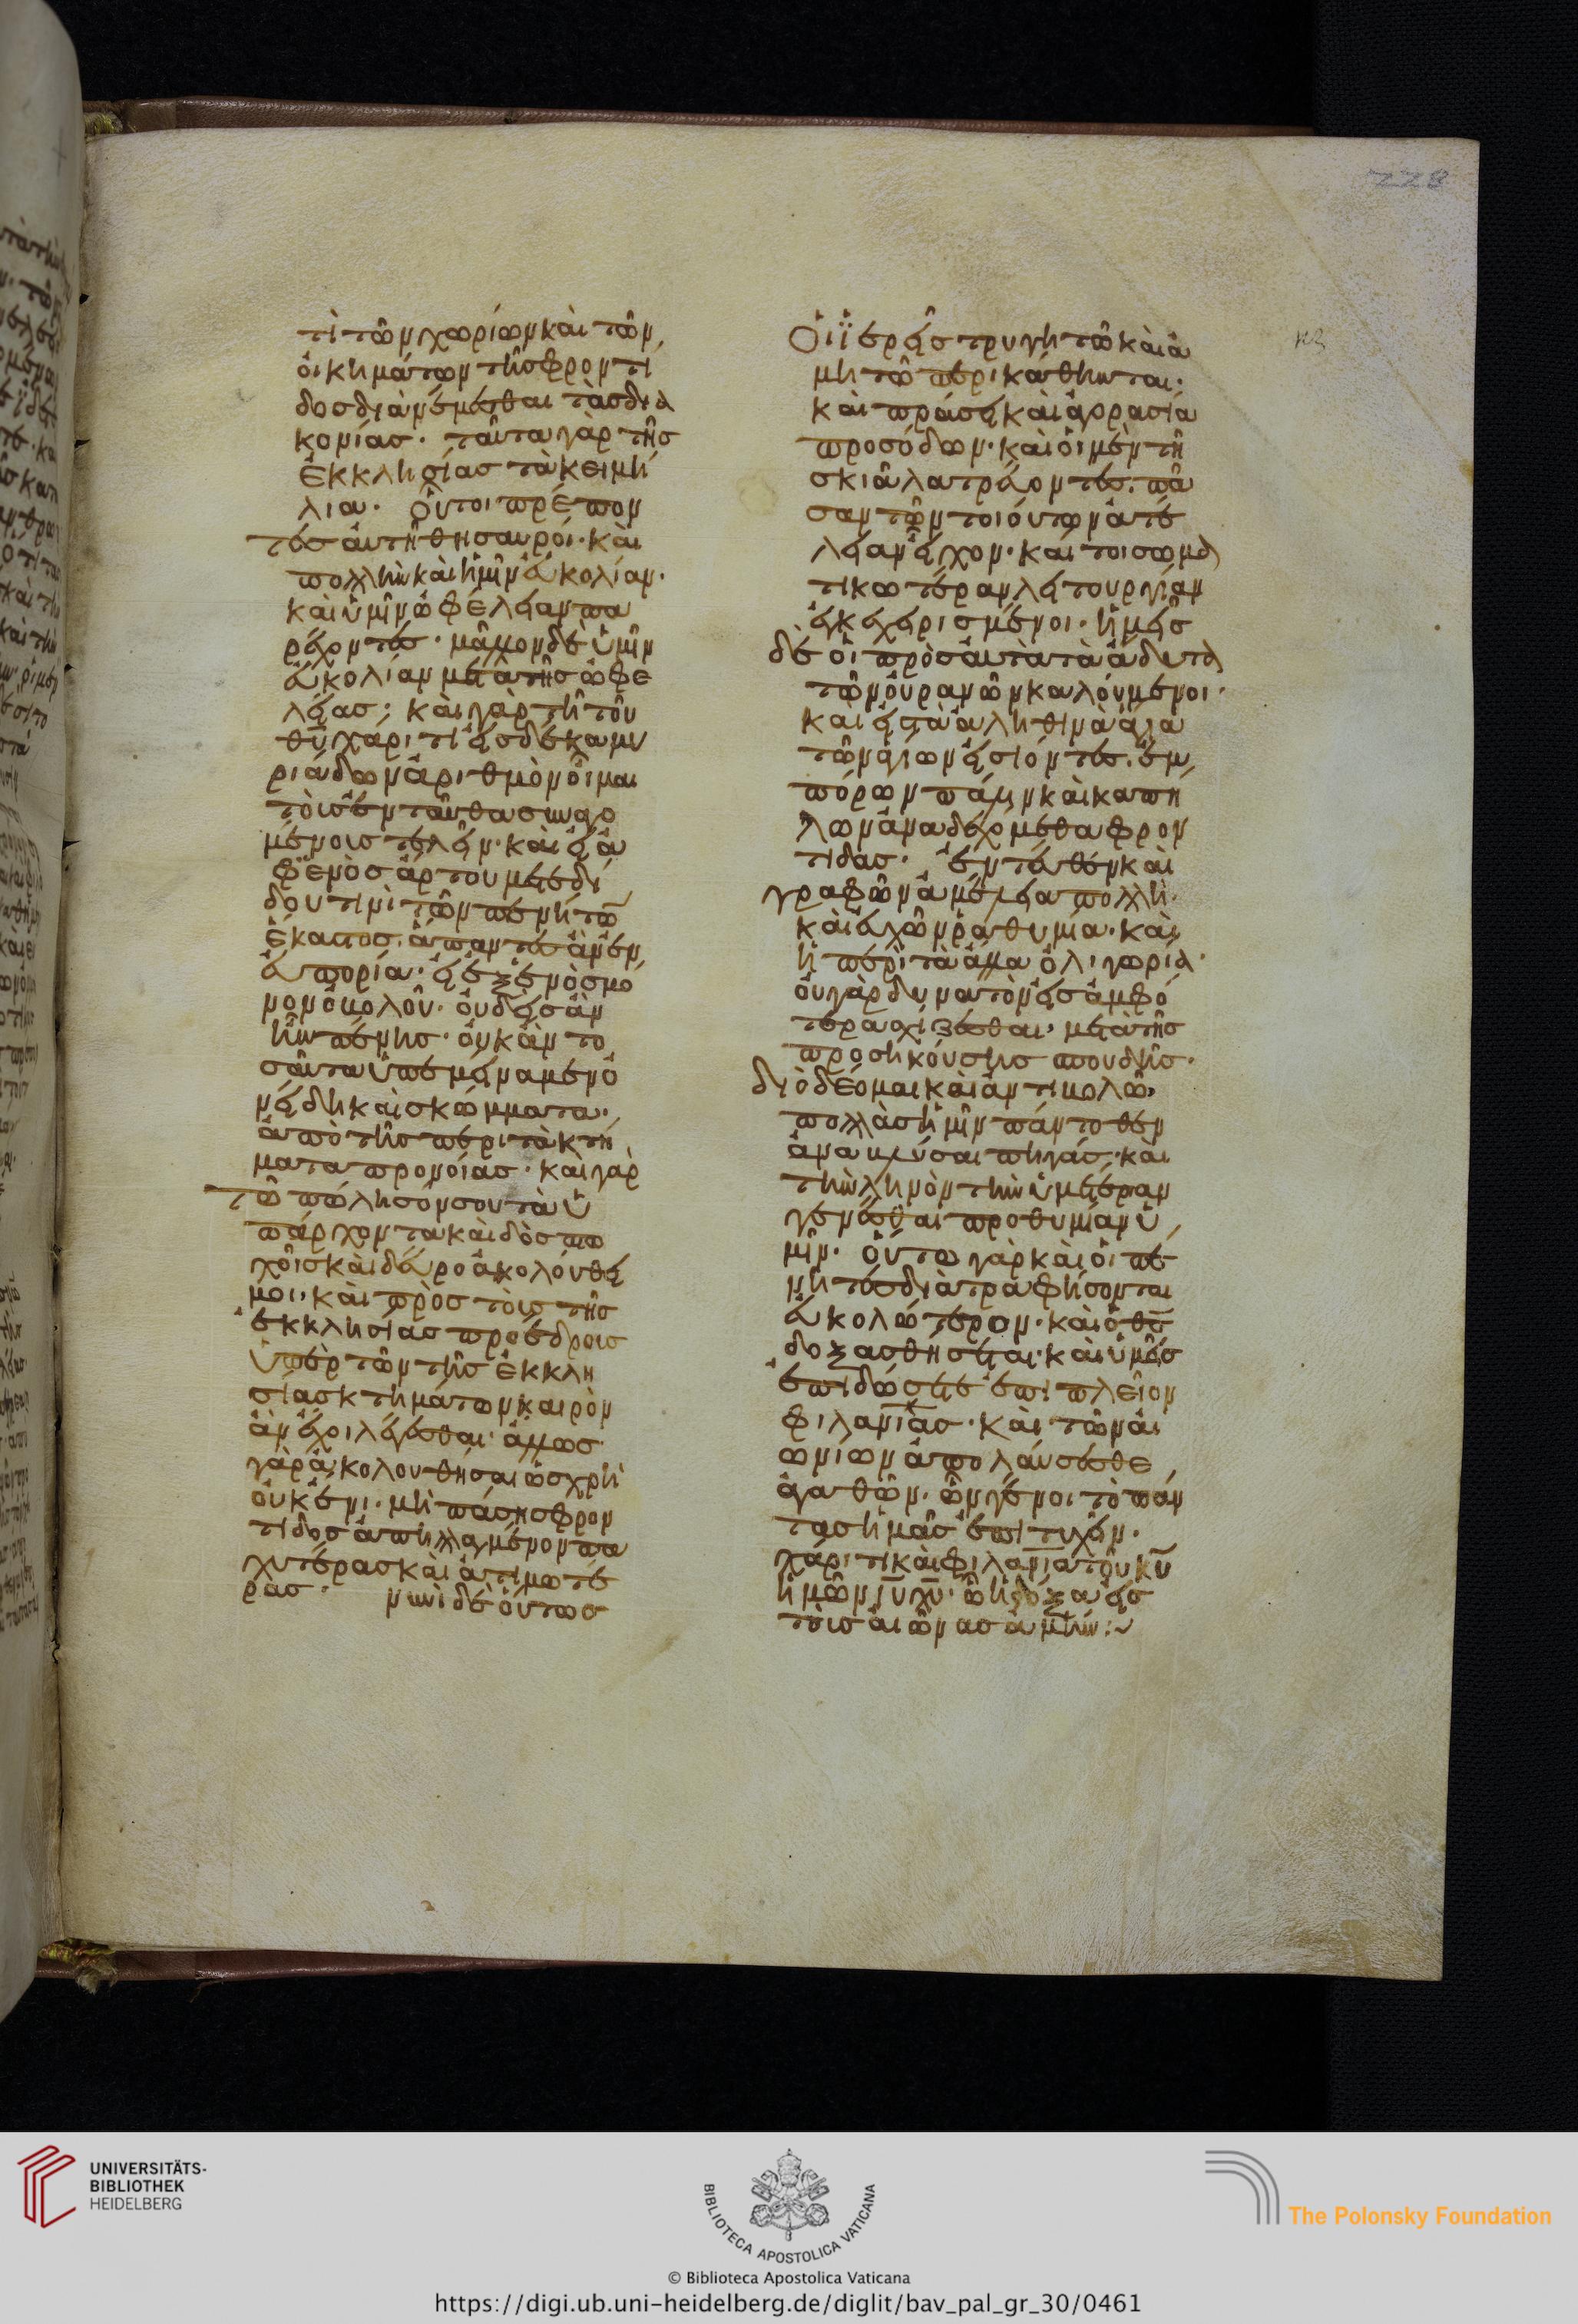 228
τὶ τῶν χωρίων καὶ τῶν
οἰκημάτων τῆς φροντί
δος διανέμεσθαι τὰς δια
κονίας. ταῦτα γὰρ τῆς
ἐκκλησίας τὰ κειμή
λια. οὗτοι πρέπον
τες αὐτῆ θησαυροί. καὶ
πολλὴν καὶ ἡμῖν εὐκολίαν.
καὶ ὑμῖν ὠφέλειαν πα
ρέχοντες. μᾶλλον δὲ ὑμῖν
εὐκολίαν μετὰ τῆς ὠφε
λείας; καὶ γὰρ τῆ τοῦ
θυ χάριτι εἰς δέκα μυ
ριάδων ἀριθμὸν οἶμαι
τοὺς ἐνταῦθα συναγο
μένους τελεῖν. καὶ εἰ ἀ
φ' ἑνὸς ἄρτου μετεδί
δου τινὶ τῶν πενήτων
ἕκαστος. ἅπαντες ἂν ἐν
εὐπορία. εἰ ἐξ ἑνὸς μό
νον ὀβολοῦ. οὐδεὶς ἂν
ἦν πένης. οὐκ ἂν το
σαῦτα ὑπεμείναμεν ὀ
νείδη καὶ σκώμματα.
ἀπὸ τῆς περὶ τὰ κτή
ματα προνοίας. καὶ γὰρ
τῶ πώλησόν σου τὰ ὑ
πάρχοντα καὶ δὸς πτω
χοῖς καὶ δεῦρο ἀκολούθει
μοι. καὶ πρὸς τοὺς τῆς
ἐκκλησίας προέδρους
ὑπὲρ τῶν τῆς ἐκκλη
σίας κτημάτων καιρὸν
ἂν ἔχοι λέγεσθαι. ἄλλως
γὰρ ἀκολουθῆσαι ὡς χρὴ
οὐκ ἔνι. μὴ πάσης φρον
τίδος ἀπηλλαγμένον πα
χυτέρας καὶ ἀτιμωτέ
ρας. νυνὶ δὲ οὕτως
Οἱ ϊερεῖς τρυγητῶ καὶ ἀ
μητῶ περικάθηνται.
καὶ πράσει καὶ ἀγορασία
προσόδων. καὶ οἱ μὲν τῆ
σκιᾶ λατρεύοντες. πᾶ
σαν τῶν τοιούτων ἀτέ
λειαν εἶχον. καίτοι σωμα
τικωτέραν λειτουργίαν
ἐγκεχειρισμένοι. ἡμεῖς
δὲ οἱ πρὸς αὐτὰ τὰ ἄδυτα
τῶν οὐρανῶν καλούμενοι.
καὶ εἰς τὰ ἀληθινὰ ἅγια
τῶν ἁγίων εἰσιόντες. ἐμ
πόρων πάλιν καὶ καπή
λων ἀναδεχόμεθα φρον
τίδας. ἐντεῦθεν καὶ
γραφῶν ἀμέλεια πολλὴ.
καὶ εὐχῶν ῥαθυμία. καὶ
ἡ περὶ τὰ ἄλλα ὀλιγωρία.
οὐ γὰρ δυνατὸν εἰς ἀμφό
τερα σχίζεσθαι. μετὰ τῆς
προσηκούσης σπουδῆς.
διὸ δέομαι καὶ ἀντιβολῶ.
πολλὰς ἡμῖν πάντοθεν
ἀναβλύσαι πηγάς. καὶ
τὴν ληνὸν τὴν ὑμετέραν
γενέσθαι προθυμίαν ὑ
μῖν. οὕτω γὰρ καὶ οἱ πέ
νητες διατραφήσονται
εὐκολώτερον. καὶ ὁ θς
δοξασθήσεται. καὶ ὑμεῖς
ἐπιδώσετε ἐπὶ πλεῖον
φιλανιας. καὶ τῶν αἰ
ωνίων ἀπολαύσεσθε
ἀγαθῶν. ὧν γένοιτο πάν
τας ἡμᾶς ἐπιτυχεῖν.
χάριτι καὶ φιλανια τοῦ κυ
ἡμῶν ιυ χυ. ὧ ἡ δόξα εἰς
τοὺς αἰῶνας ἀμήν:~
UNIVERSITÄTS-
BIBLIOTHEK
HEIDELBERG
BIBLIOTECA APOSTOLICA VATICANA
The Polonsky Foundation
© Biblioteca Apostolica Vaticana
https://digi.ub.uni-heidelberg.de/diglit/bav_pal_gr_30/0461